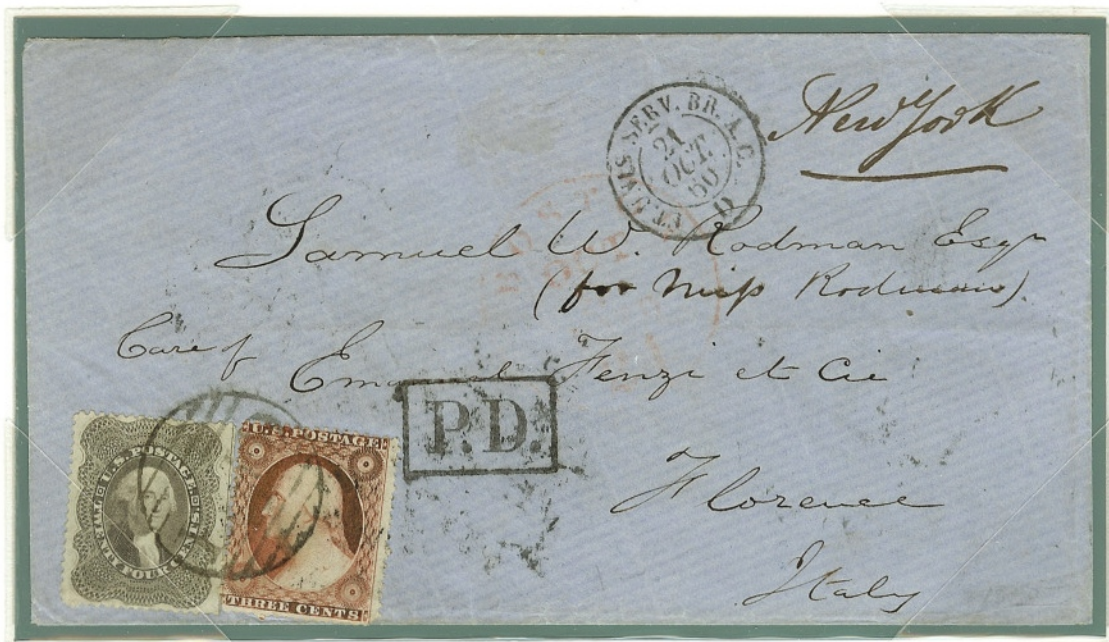 New York
ET. UNIS SERV. BR. A. C.
21
OCT.
60
D
Samuel W. Rodman Esqr
(for Miss Rodman)
Care of Emanuel Fenzi et Cie
P.D.
Florence
Italy
U.S. POSTAGE
TWENTY FOUR CENTS
U.S. POSTAGE
THREE CENTS